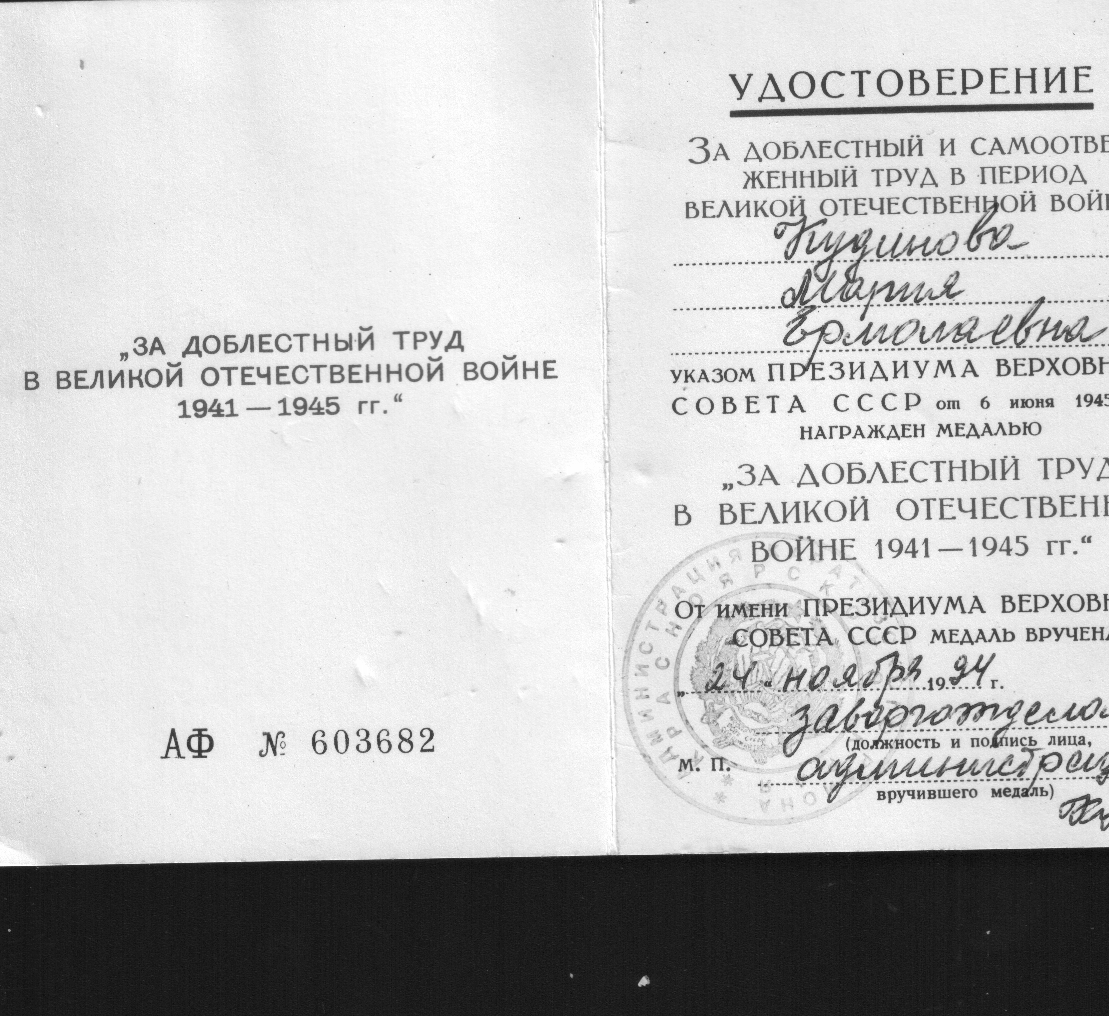 „ЗА ДОБЛЕСТНЫЙ ТРУД
В ВЕЛИКОЙ ОТЕЧЕСТВЕННОЙ ВОЙНЕ
1941 — 1945 гг.“
АФ № 603682
УДОСТОВЕРЕНИЕ
ЗА ДОБЛЕСТНЫЙ И САМООТВЕ
ЖЕННЫЙ ТРУД В ПЕРИОД
ВЕЛИКОЙ ОТЕЧЕСТВЕННОЙ ВОЙ
Кудинова
Мария
Ермолаевна
УКАЗОМ ПРЕЗИДИУМА ВЕРХОВН
СОВЕТА СССР от 6 июня 1945
НАГРАЖДЕН МЕДАЛЬЮ
„ЗА ДОБЛЕСТНЫЙ ТРУД
В ВЕЛИКОЙ ОТЕЧЕСТВЕНН
ВОЙНЕ 1941 — 1945 гг.“
ОТ ИМЕНИ ПРЕЗИДИУМА ВЕРХОВН
СОВЕТА СССР МЕДАЛЬ ВРУЧЕНА
„24“ ноября 1994 г.
заворготделом
(должность и подпись лица,
М. П. администрац
вручившего медаль)
АДМИНИСТРАЦИЯ
КРАСНОЯРСК